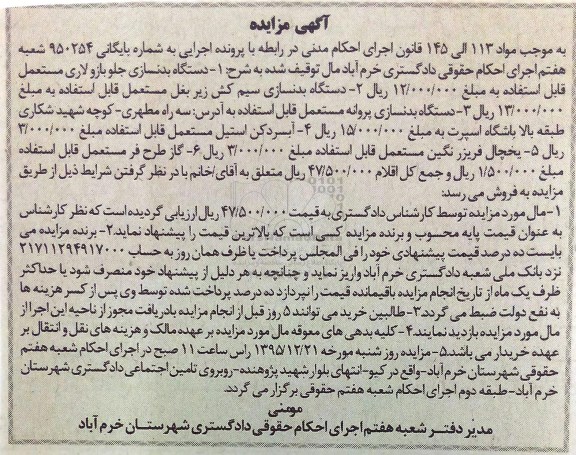 آگهی مزایده
به موجب مواد ۱۱۳ الی ۱۴۵ قانون اجرای احکام مدنی در رابطه با پرونده اجرایی به شماره بایگانی ۹۵۰۲۵۴ شعبه
هفتم اجرای احکام حقوقی دادگستری خرم آباد مال توقیف شده به شرح: ۱-دستگاه بدنسازی جلو بازو لاری مستعمل
قابل استفاده به مبلغ ۱۲/۰۰۰/۰۰۰ ریال ۲- دستگاه بدنسازی سیم کش زیر بغل مستعمل قابل استفاده به مبلغ
۱۳/۰۰۰/۰۰۰ ریال ۳-دستگاه بدنسازی پروانه مستعمل قابل استفاده به آدرس: سه راه مطهری-کوچه شهید شکاری
طبقه بالا باشگاه اسپرت به مبلغ ۱۵/۰۰۰/۰۰۰ ریال ۴- آبسردکن استیل مستعمل قابل استفاده مبلغ ۳/۰۰۰/۰۰۰
ریال ۵- یخچال فریزر نگین مستعمل قابل استفاده مبلغ ۳/۰۰۰/۰۰۰ ریال ۶- گاز طرح فر مستعمل قابل استفاده
مبلغ ۱/۵۰۰/۰۰۰ ریال و جمع کل اقلام ۴۷/۵۰۰/۰۰۰ ریال متعلق به آقای/خانم با در نظر گرفتن شرایط ذیل از طریق
مزایده به فروش می رسد:
۱-مال مورد مزایده توسط کارشناس دادگستری به قیمت ۴۷/۵۰۰/۰۰۰ ریال ارزیابی گردیده است که نظر کارشناس
به عنوان قیمت پایه محسوب و برنده مزایده کسی است که بالاترین قیمت را پیشنهاد نماید ۲- برنده مزایده می
بایست ده درصد قیمت پیشنهادی خود را فی المجلس پرداخت یا ظرف همان روز به حساب ۲۱۷۱۱۲۹۴۹۱۷۰۰۰
نزد بانک ملی شعبه دادگستری خرم آباد واریز نماید و چنانچه به هر دلیل از پیشنهاد خود منصرف شود یا حداکثر
ظرف یک ماه از تاریخ انجام مزایده باقیمانده قیمت را نپردازد ده درصد پرداخت شده توسط وی پس از کسر هزینه ها
به نفع دولت ضبط می گردد ۳-طالبین خرید می توانند ۵ روز قبل از انجام مزایده با دریافت مجوز از ناحیه این اجرا از
مال مورد مزایده بازدید نمایند ۴-کلیه بدهی های معوقه مال مورد مزایده بر عهده مالک و هزینه های نقل و انتقال بر
عهده خریدار می باشد ۵-مزایده روز شنبه مورخه ۱۳۹۵/۱۲/۲۱ راس ساعت ۱۱ صبح در اجرای احکام شعبه هفتم
حقوقی شهرستان خرم آباد-واقع در کیو-انتهای بلوار شهید پژوهنده-روبروی تامین اجتماعی دادگستری شهرستان
خرم آباد-طبقه دوم اجرای احکام شعبه هفتم حقوقی برگزار می گردد
مومنی
مدیر دفتر شعبه هفتم اجرای احکام حقوقی دادگستری شهرستان خرم آباد